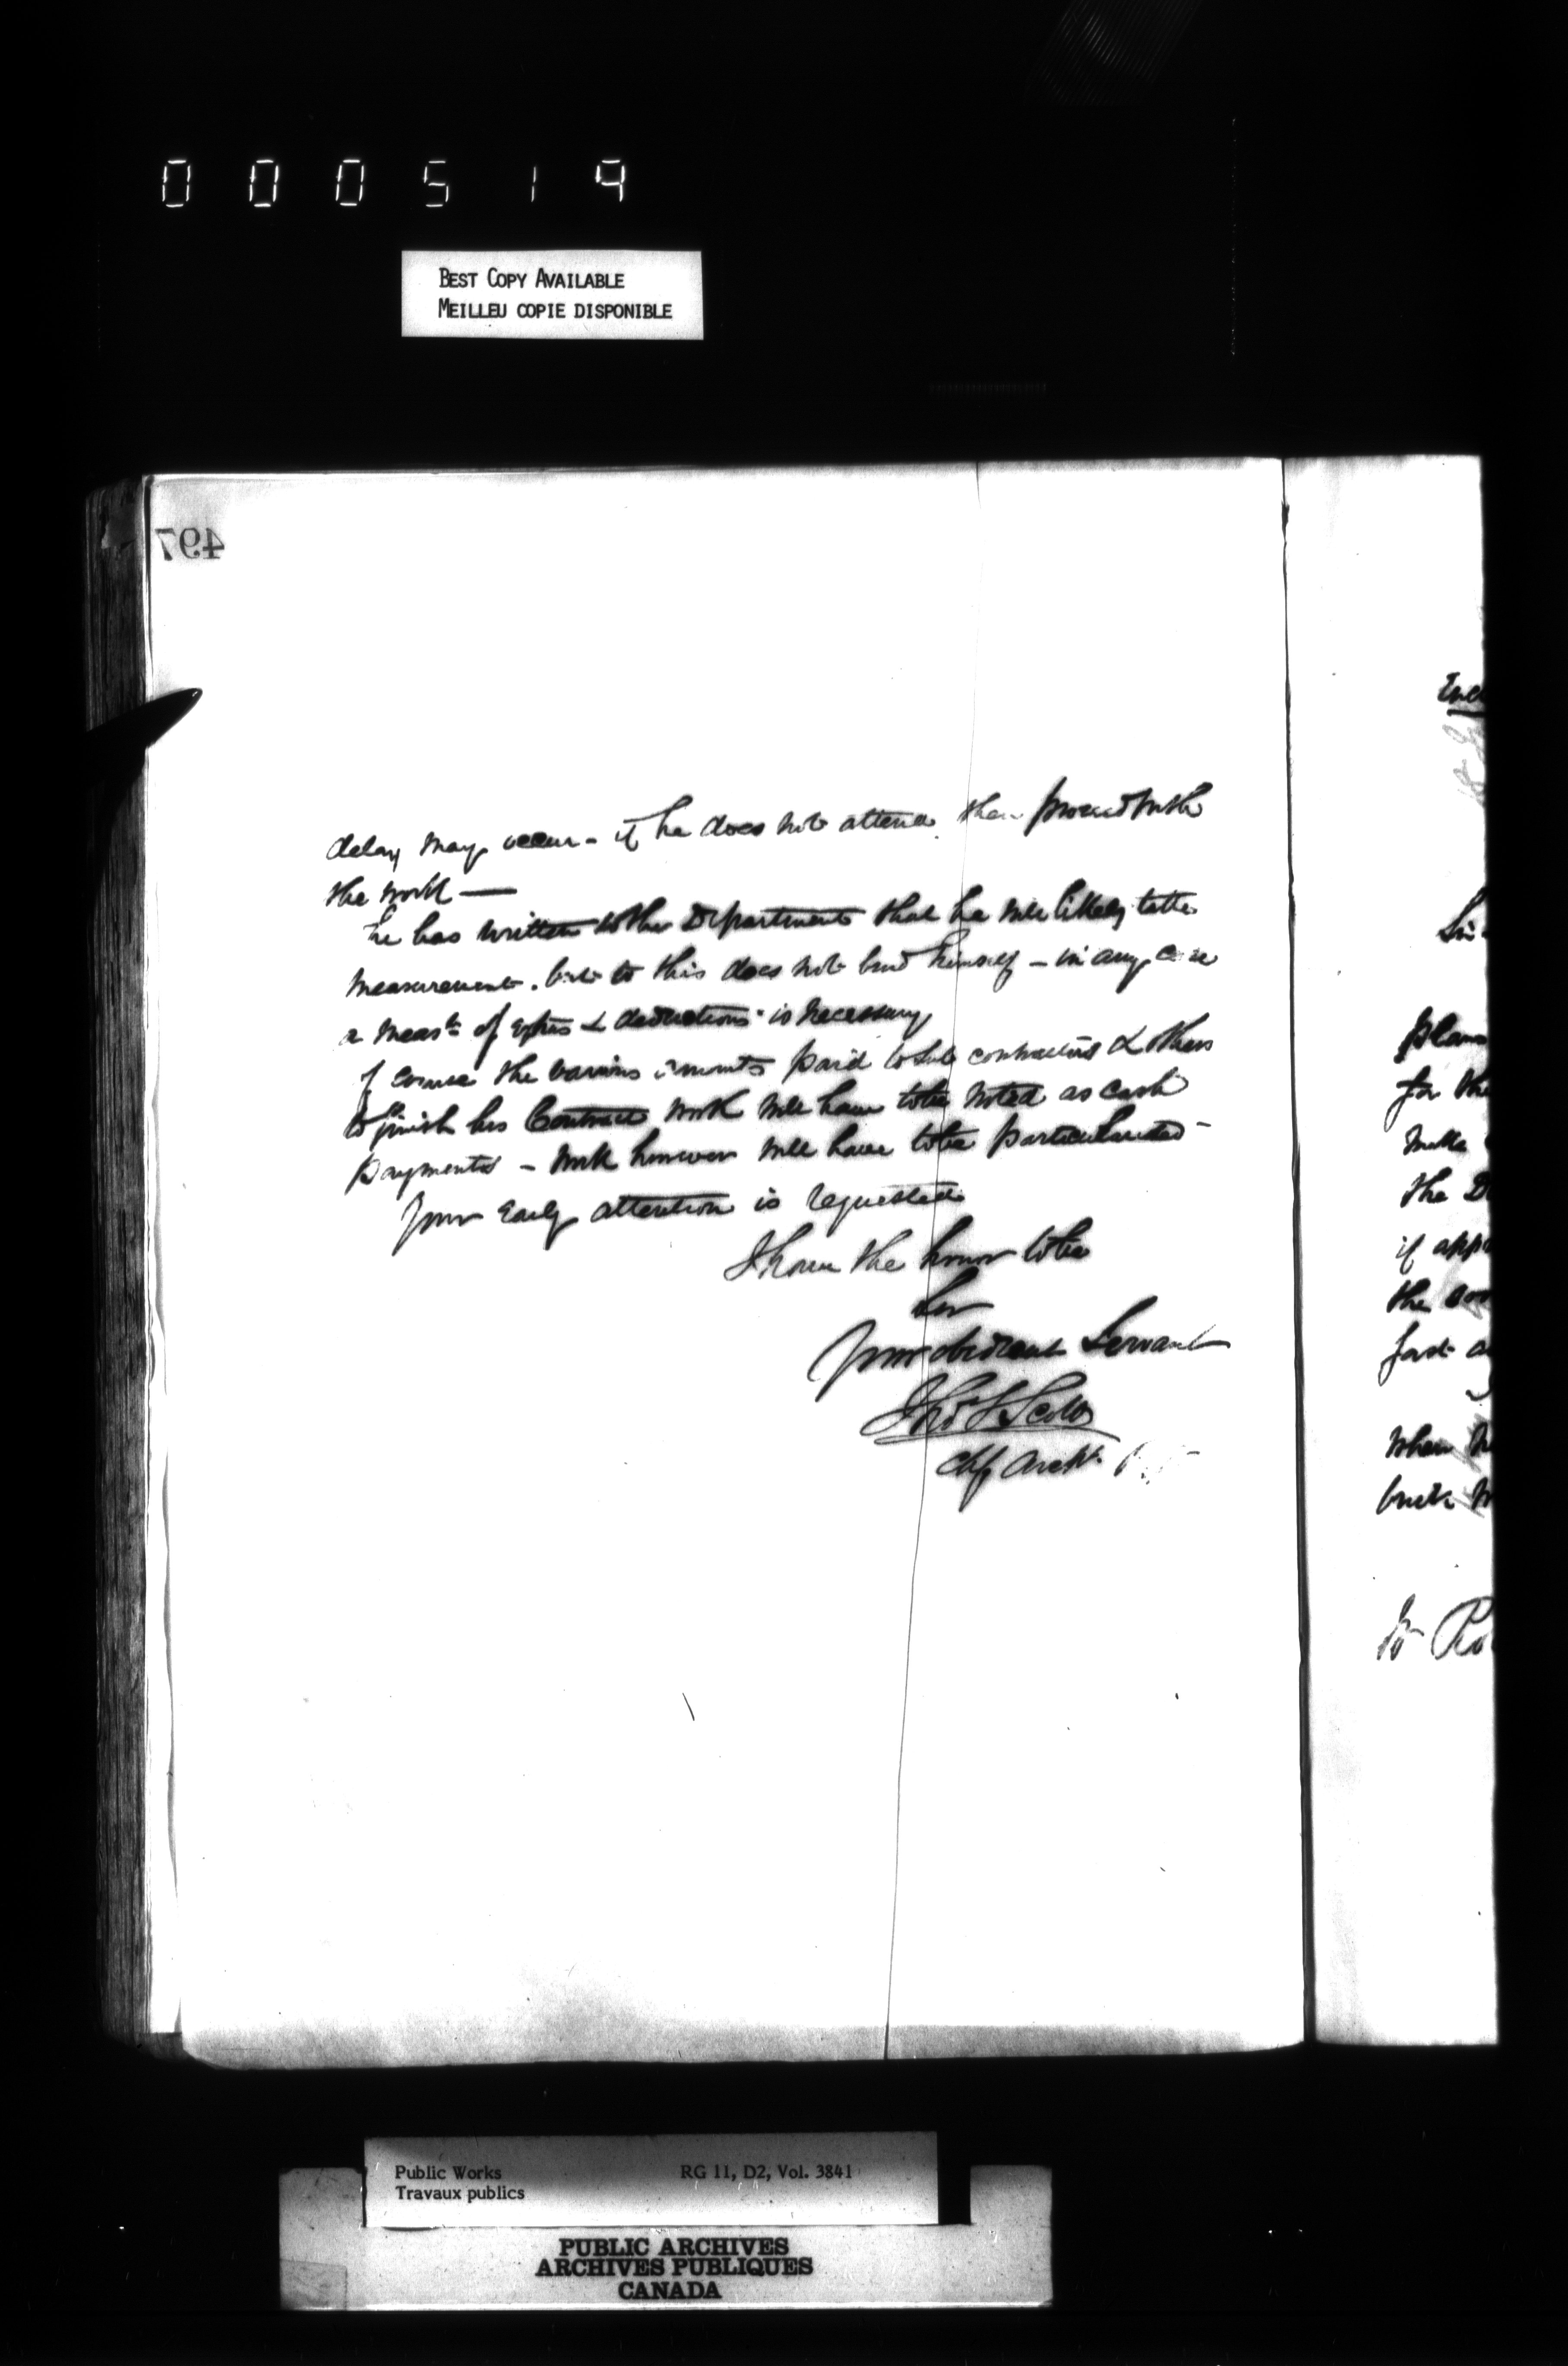 000519
BEST COPY AVAILABLE
MEILLEU COPIE DISPONIBLE
497
delay may occur - if he does not attend then proceed with
the work —
he has written to the Department that he will likely take
measurement. but to this does not bind himself - in any case
a meast. of extras & deductions is necessary
of course the various amounts paid to sub contractors & others
to finish his Contract work will have to be noted as cash
payments - work however will have to be particularised -
Your early attention is requested
I have the honor to be
Sir
Your obedient Servant
Thos S Scott
Chf Archt.
Sir
plans
for the
the D
if app
the
when
To Ro
Public Works
Travaux publics
RG 11, D2, Vol. 3841
PUBLIC ARCHIVES
ARCHIVES PUBLIQUES
CANADA